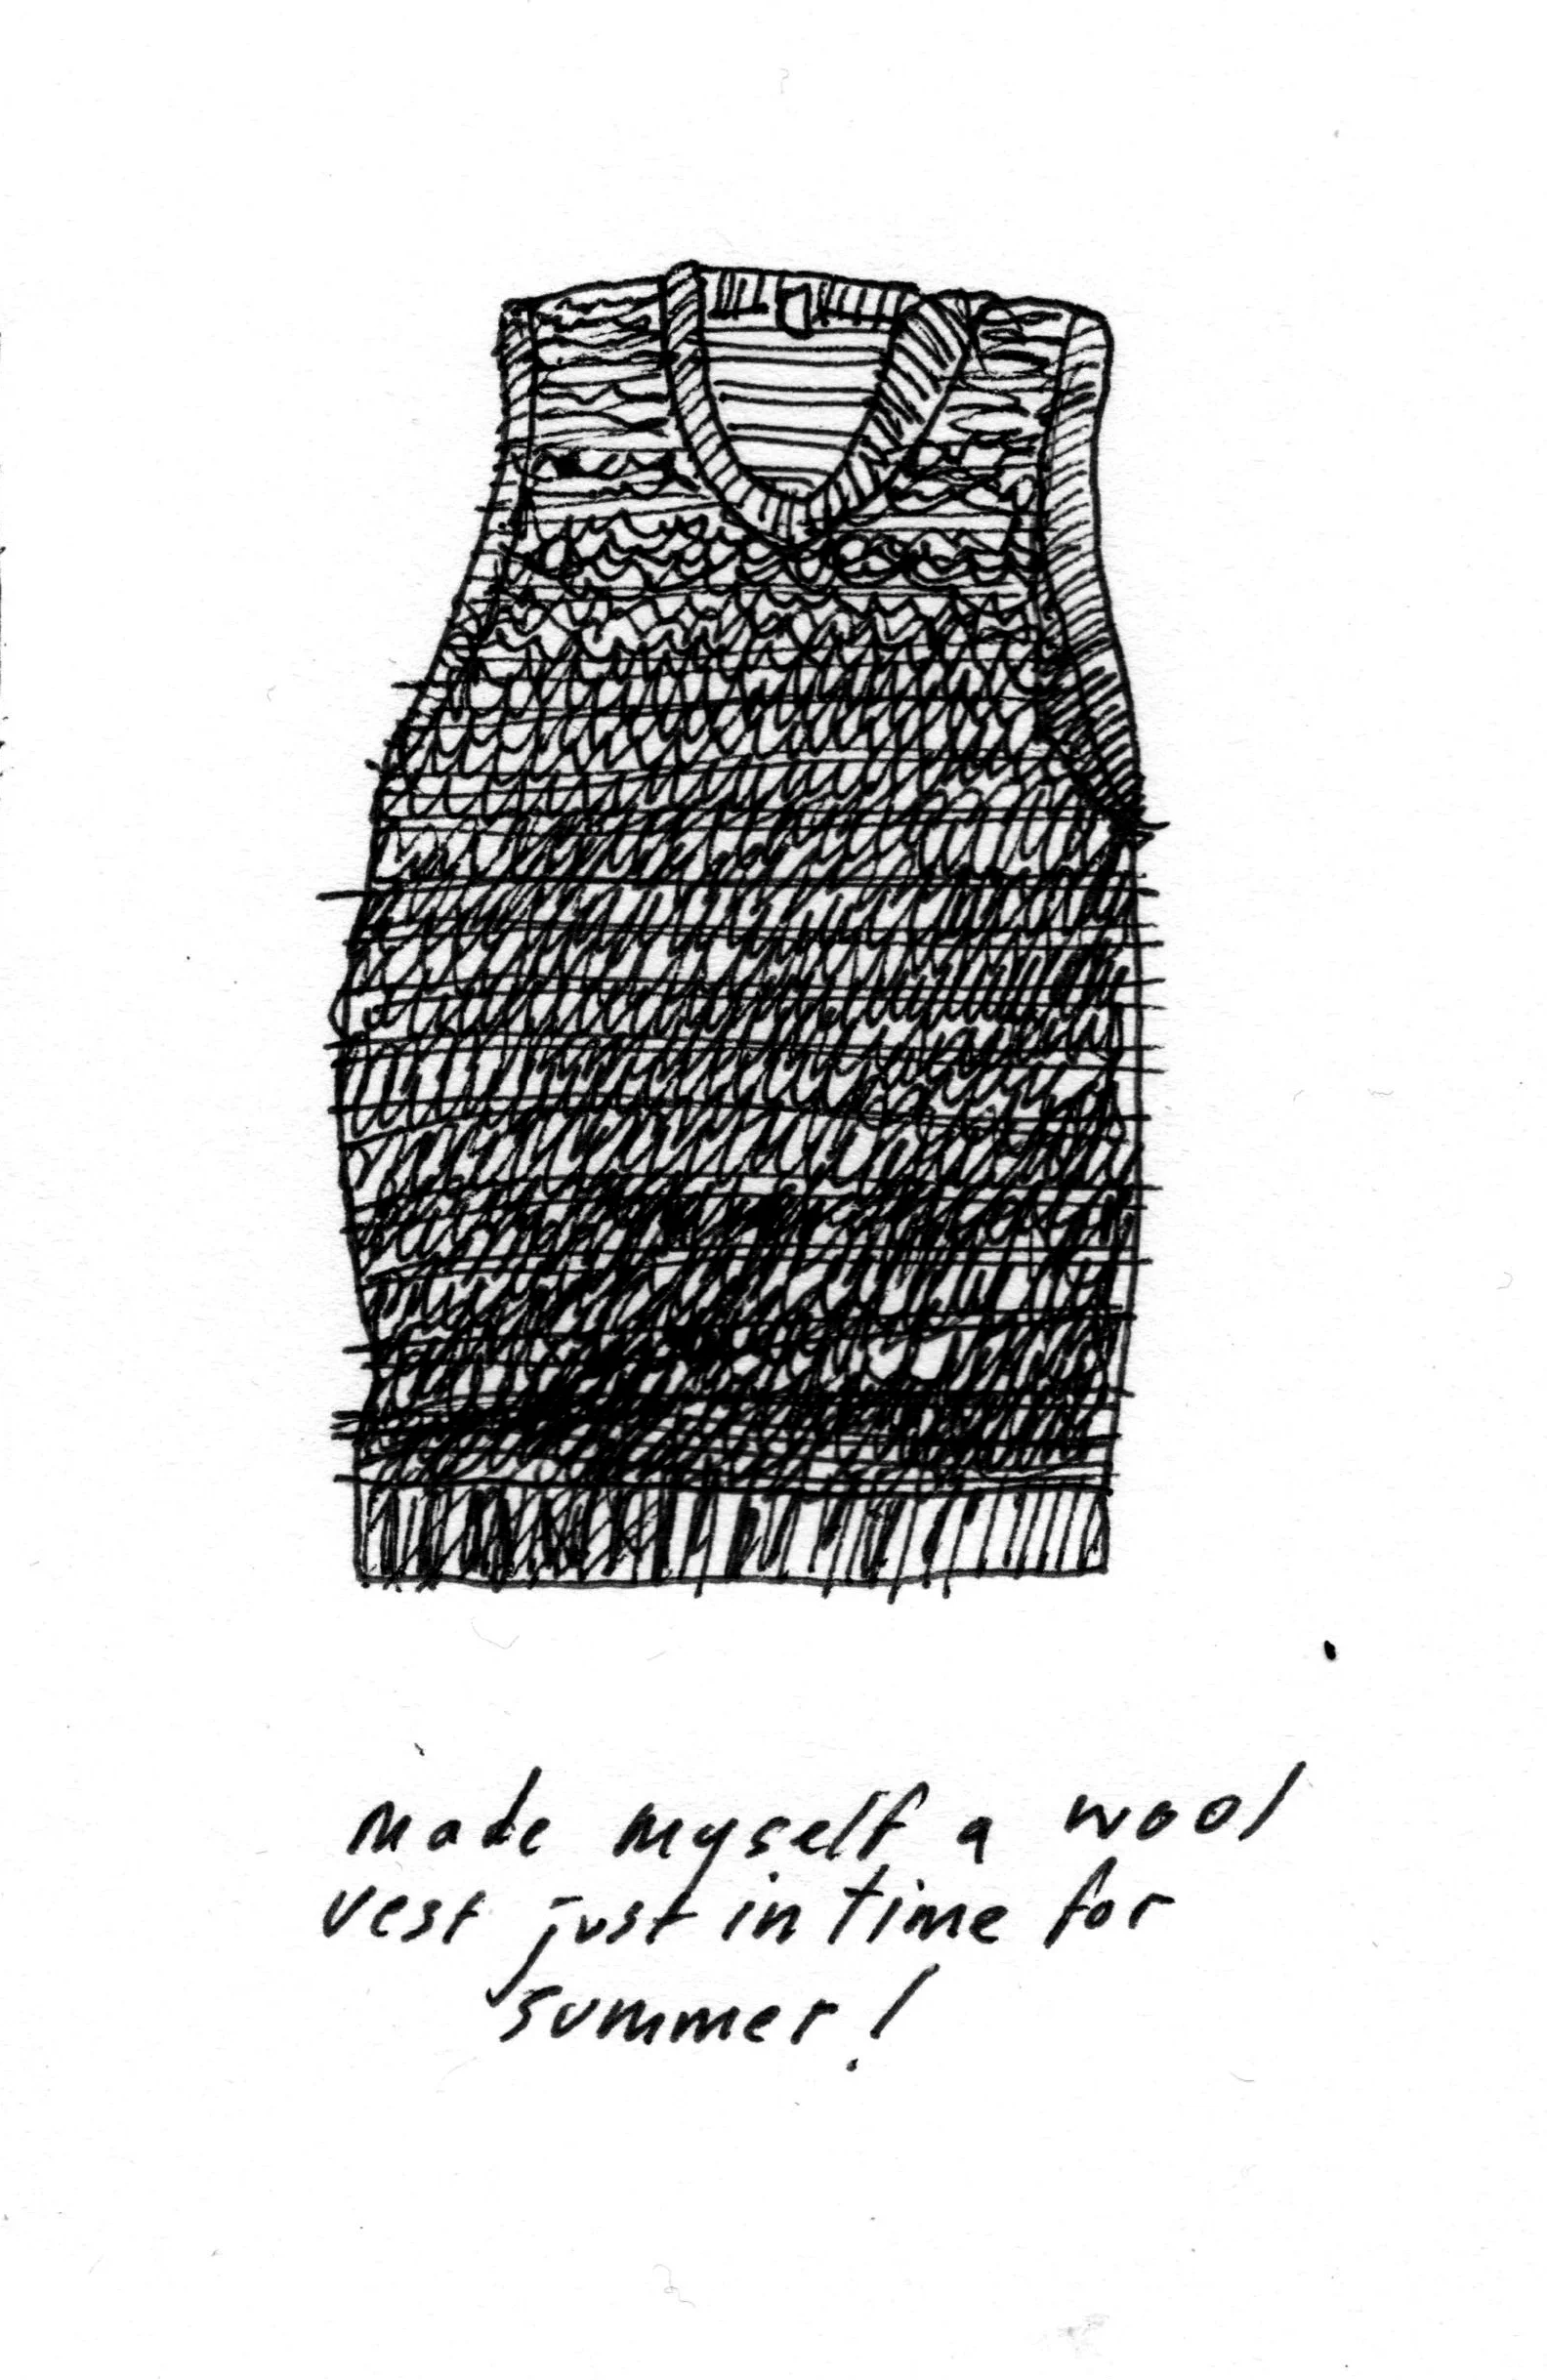 made myself a wool
vest just in time for
summer!